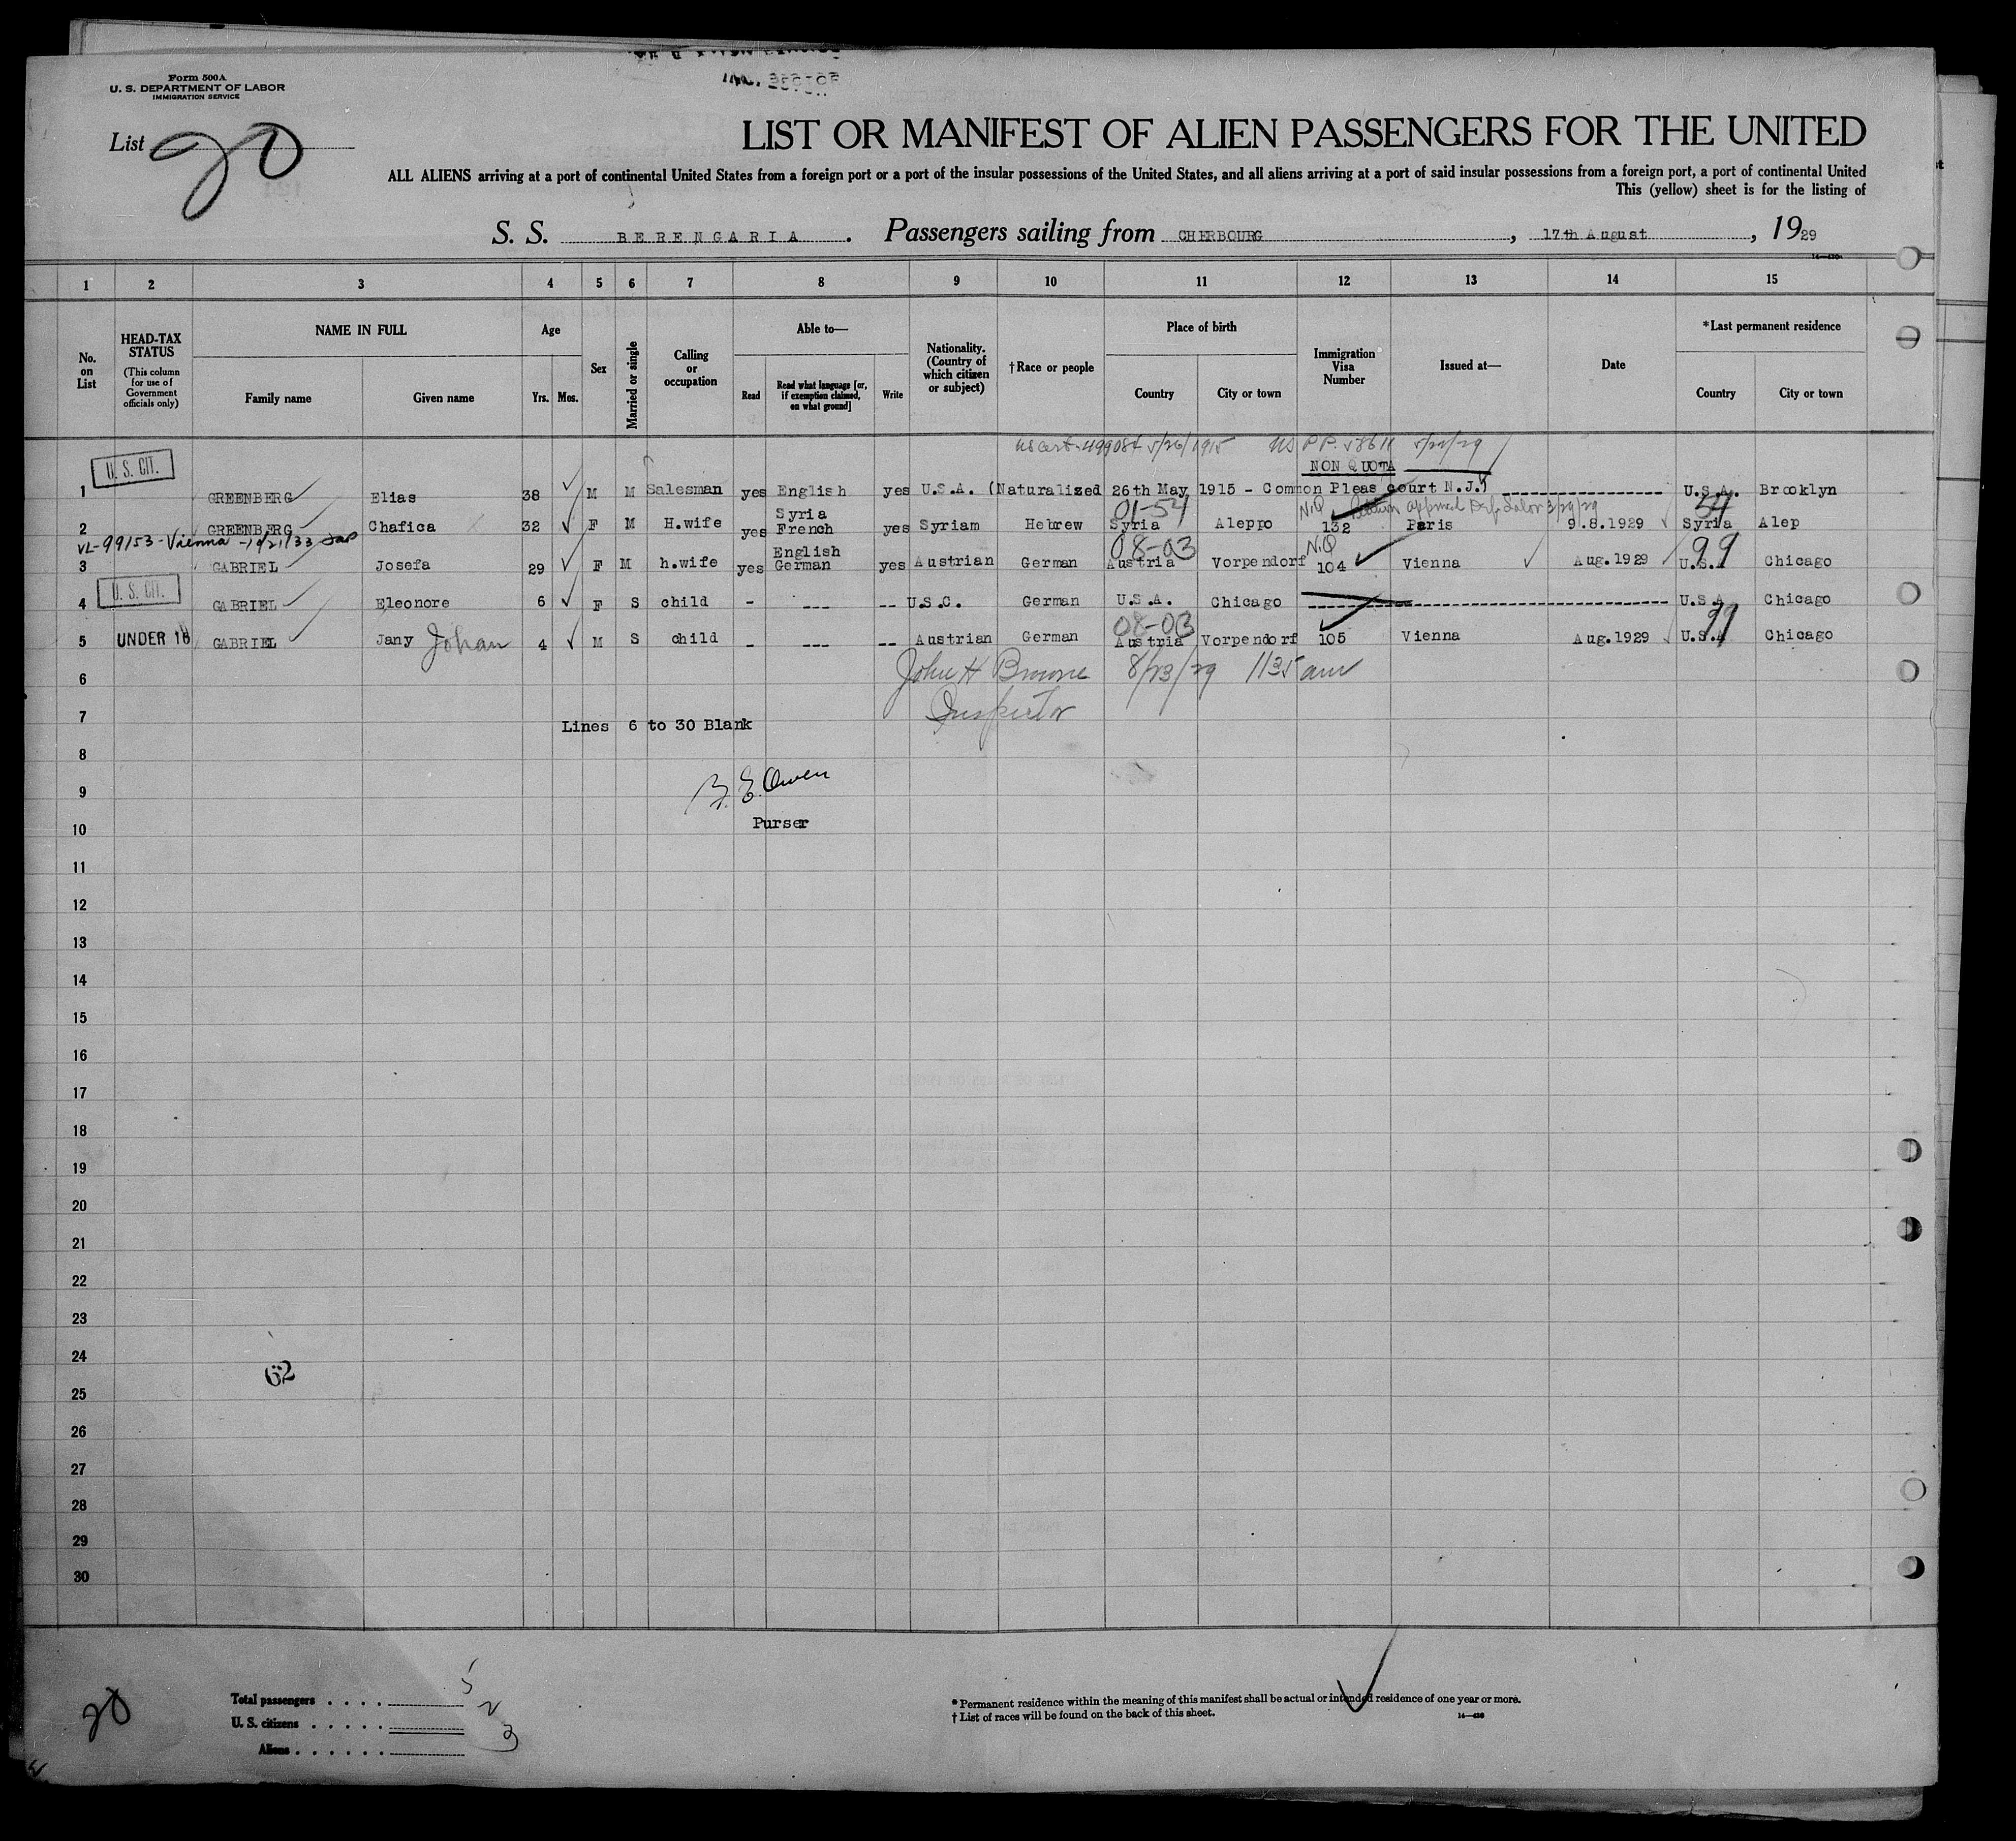 Form 500A
U. S. DEPARTMENT OF LABOR
IMMIGRATION SERVICE
List 20
LIST OR MANIFEST OF ALIEN PASSENGERS FOR THE UNITED
ALL ALIENS arriving at a port of continental United States from a foreign port or a port of the insular possessions of the United States, and all aliens arriving at a port of said insular possessions from a foreign port, a port of continental United
This (yellow) sheet is for the listing of
S. S. BERENGARIA . Passengers sailing from CHERBOURG , 17th August , 1929
1 2 3 4 5 6 7 8 9 10 11 12 13 14 15
No. on List
HEAD-TAX STATUS (This column for use of Government officials only)
NAME IN FULL Family name Given name
Age Yrs. Mos.
Sex
Married or single
Calling or occupation
Able to— Read Read what language [or, if exemption claimed, on what ground] Write
Nationality. (Country of which citizen or subject)
†Race or people
Place of birth Country City or town
Immigration Visa Number
Issued at—
Date
*Last permanent residence Country City or town
5/26/1915 US P.P.
NON QUOTA
1 U. S. CIT. GREENBERG Elias 38 M M Salesman yes English yes U.S.A. (Naturalized 26th May 1915 - Common Pleas court N.J.) U.S.A. Brooklyn
01-54 N.Q 54
2 GREENBERG Chafica 32 F M H.wife yes Syria French yes Syriam Hebrew Syria Aleppo 132 Paris 9.8.1929 Syria Alep
VL-99153-Vienna-10/21/33
08-03 N.Q 99
3 GABRIEL Josefa 29 F M h.wife yes English German yes Austrian German Austria Vorpendorf 104 Vienna Aug.1929 U.S.A Chicago
4 U. S. CIT. GABRIEL Eleonore 6 F S child - --- -- U.S.C. German U.S.A. Chicago U.S.A Chicago
08-03 99
5 UNDER 16 GABRIEL Jany Johan 4 M S child - --- -- Austrian German Austria Vorpendorf 105 Vienna Aug.1929 U.S.A Chicago
6 John H Browne 8/23/29 1135 am
7 Inspector
Lines 6 to 30 Blank
8
9 Owen
10 Purser
11
12
13
14
15
16
17
18
19
20
21
22
23
24
62
25
26
27
28
29
30
20
Total passengers . . . . 5
U. S. citizens . . . . . 2
Aliens . . . . . . 3
* Permanent residence within the meaning of this manifest shall be actual or intended residence of one year or more.
† List of races will be found on the back of this sheet.